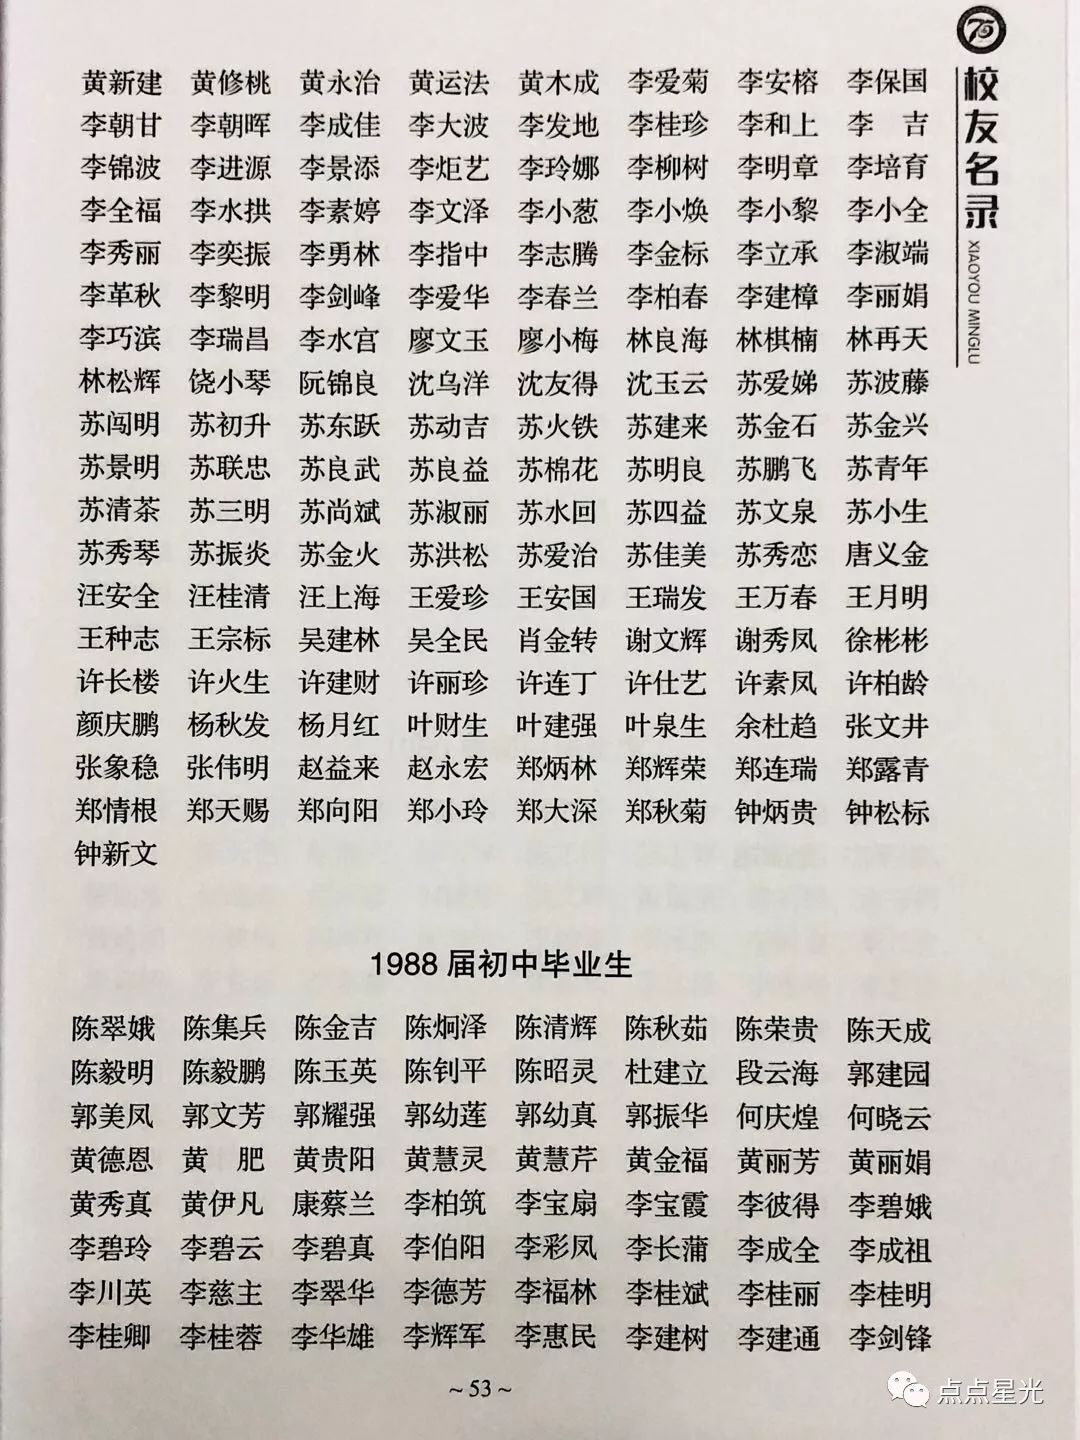 黄新建 黄修桃 黄永治 黄运法 黄木成 李爱菊 李安榕 李保国
李朝甘 李朝晖 李成佳 李大波 李发地 李桂珍 李和上 李　吉
李锦波 李进源 李景添 李炬艺 李玲娜 李柳树 李明章 李培育
李全福 李水拱 李素婷 李文泽 李小葱 李小焕 李小黎 李小全
李秀丽 李奕振 李勇林 李指中 李志腾 李金标 李立承 李淑端
李革秋 李黎明 李剑峰 李爱华 李春兰 李柏春 李建樟 李丽娟
李巧滨 李瑞昌 李水宫 廖文玉 廖小梅 林良海 林棋楠 林再天
林松辉 饶小琴 阮锦良 沈乌洋 沈友得 沈玉云 苏爱娣 苏波藤
苏闯明 苏初升 苏东跃 苏动吉 苏火铁 苏建来 苏金石 苏金兴
苏景明 苏联忠 苏良武 苏良益 苏棉花 苏明良 苏鹏飞 苏青年
苏清茶 苏三明 苏尚斌 苏淑丽 苏水回 苏四益 苏文泉 苏小生
苏秀琴 苏振炎 苏金火 苏洪松 苏爱治 苏佳美 苏秀恋 唐义金
汪安全 汪桂清 汪上海 王爱珍 王安国 王瑞发 王万春 王月明
王种志 王宗标 吴建林 吴全民 肖金转 谢文辉 谢秀凤 徐彬彬
许长楼 许火生 许建财 许丽珍 许连丁 许仕艺 许素凤 许柏龄
颜庆鹏 杨秋发 杨月红 叶财生 叶建强 叶泉生 余杜趋 张文井
张象稳 张伟明 赵益来 赵永宏 郑炳林 郑辉荣 郑连瑞 郑露青
郑情根 郑天赐 郑向阳 郑小玲 郑大深 郑秋菊 钟炳贵 钟松标
钟新文
1988 届初中毕业生
陈翠娥 陈集兵 陈金吉 陈炯泽 陈清辉 陈秋茹 陈荣贵 陈天成
陈毅明 陈毅鹏 陈玉英 陈钊平 陈昭灵 杜建立 段云海 郭建园
郭美凤 郭文芳 郭耀强 郭幼莲 郭幼真 郭振华 何庆煌 何晓云
黄德恩 黄　肥 黄贵阳 黄慧灵 黄慧芹 黄金福 黄丽芳 黄丽娟
黄秀真 黄伊凡 康蔡兰 李柏筑 李宝扇 李宝霞 李彼得 李碧娥
李碧玲 李碧云 李碧真 李伯阳 李彩凤 李长蒲 李成全 李成祖
李川英 李慈主 李翠华 李德芳 李福林 李桂斌 李桂丽 李桂明
李桂卿 李桂蓉 李华雄 李辉军 李惠民 李建树 李建通 李剑锋
~ 53 ~
75
校友名录
XIAOYOU MINGLU
点点星光